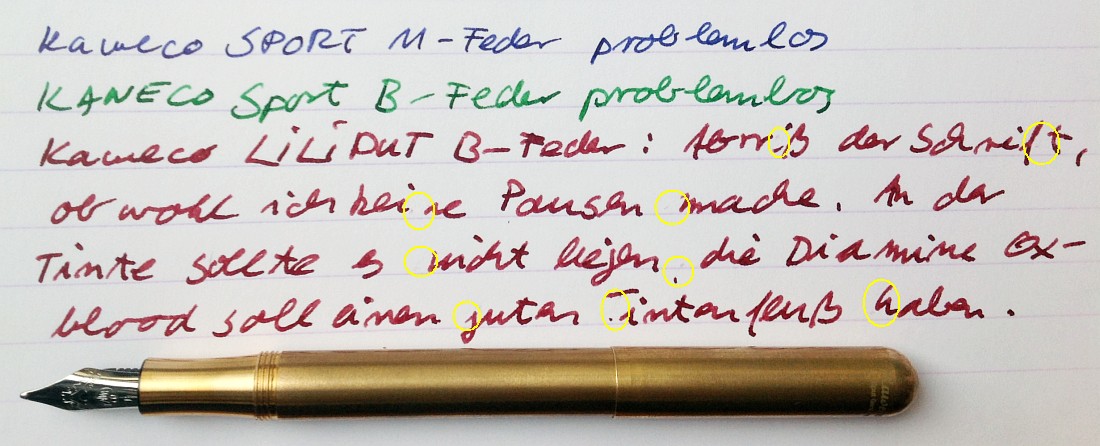 Kaweco SPORT M-Feder problemlos
KAWECO Sport B-Feder problemlos
Kaweco LiLiPUT B-Feder: Abriß der Schrift,
obwohl ich keine Pausen mache. An der
Tinte sollte es nicht liegen, die Diamine Ox-
blood soll einen guten Tintenfluß haben.